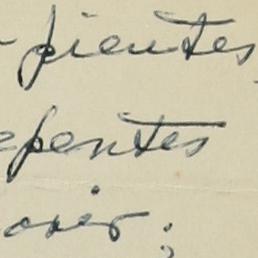 -pientes
epentes
oris;